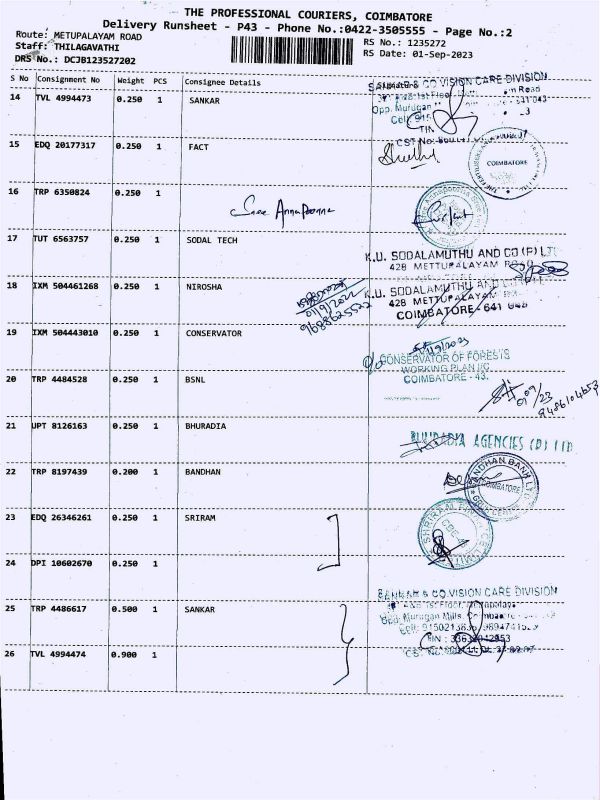 THE PROFESSIONAL COURIERS, COIMBATORE
Delivery Runsheet - P43 - Phone No.:0422-3505555 - Page No.:2
Route: METUPALAYAM ROAD
Staff: THILAGAVATHI
DRS No.: DCJB123527202
RS No.: 1235272
RS Date: 01-Sep-2023
S No Consignment No Weight PCS Consignee Details
14 TVL 4994473 0.250 1 SANKAR
& CO VISION CARE DIVISION
Opp. Murugan
15 EDQ 20177317 0.250 1 FACT
COIMBATORE
16 TRP 6350824 0.250 1
Sree Annapoorna
17 TUT 6563757 0.250 1 SODAL TECH
K.U. SODALAMUTHU AND CO (P) LTD
428 METTUPALAYAM ROAD
18 IXM 504461268 0.250 1 NIROSHA
9688625522
K.U. SODALAMUTHU AND
428 METTUPALAYAM
COIMBATORE - 641
19 IXM 504443010 0.250 1 CONSERVATOR
CONSERVATOR OF FORESTS
WORKING PLAN
COIMBATORE - 43.
20 TRP 4484528 0.250 1 BSNL
21 UPT 8126163 0.250 1 BHURADIA
AGENCIES (P) LTD
22 TRP 8197439 0.200 1 BANDHAN
BANDHAN BANK LTD
COIMBATORE
23 EDQ 26346261 0.250 1 SRIRAM
24 DPI 10602670 0.250 1
25 TRP 4486617 0.500 1 SANKAR
SANKAR & CO VISION CARE DIVISION
Opp. Murugan Mills,
26 TVL 4994474 0.900 1